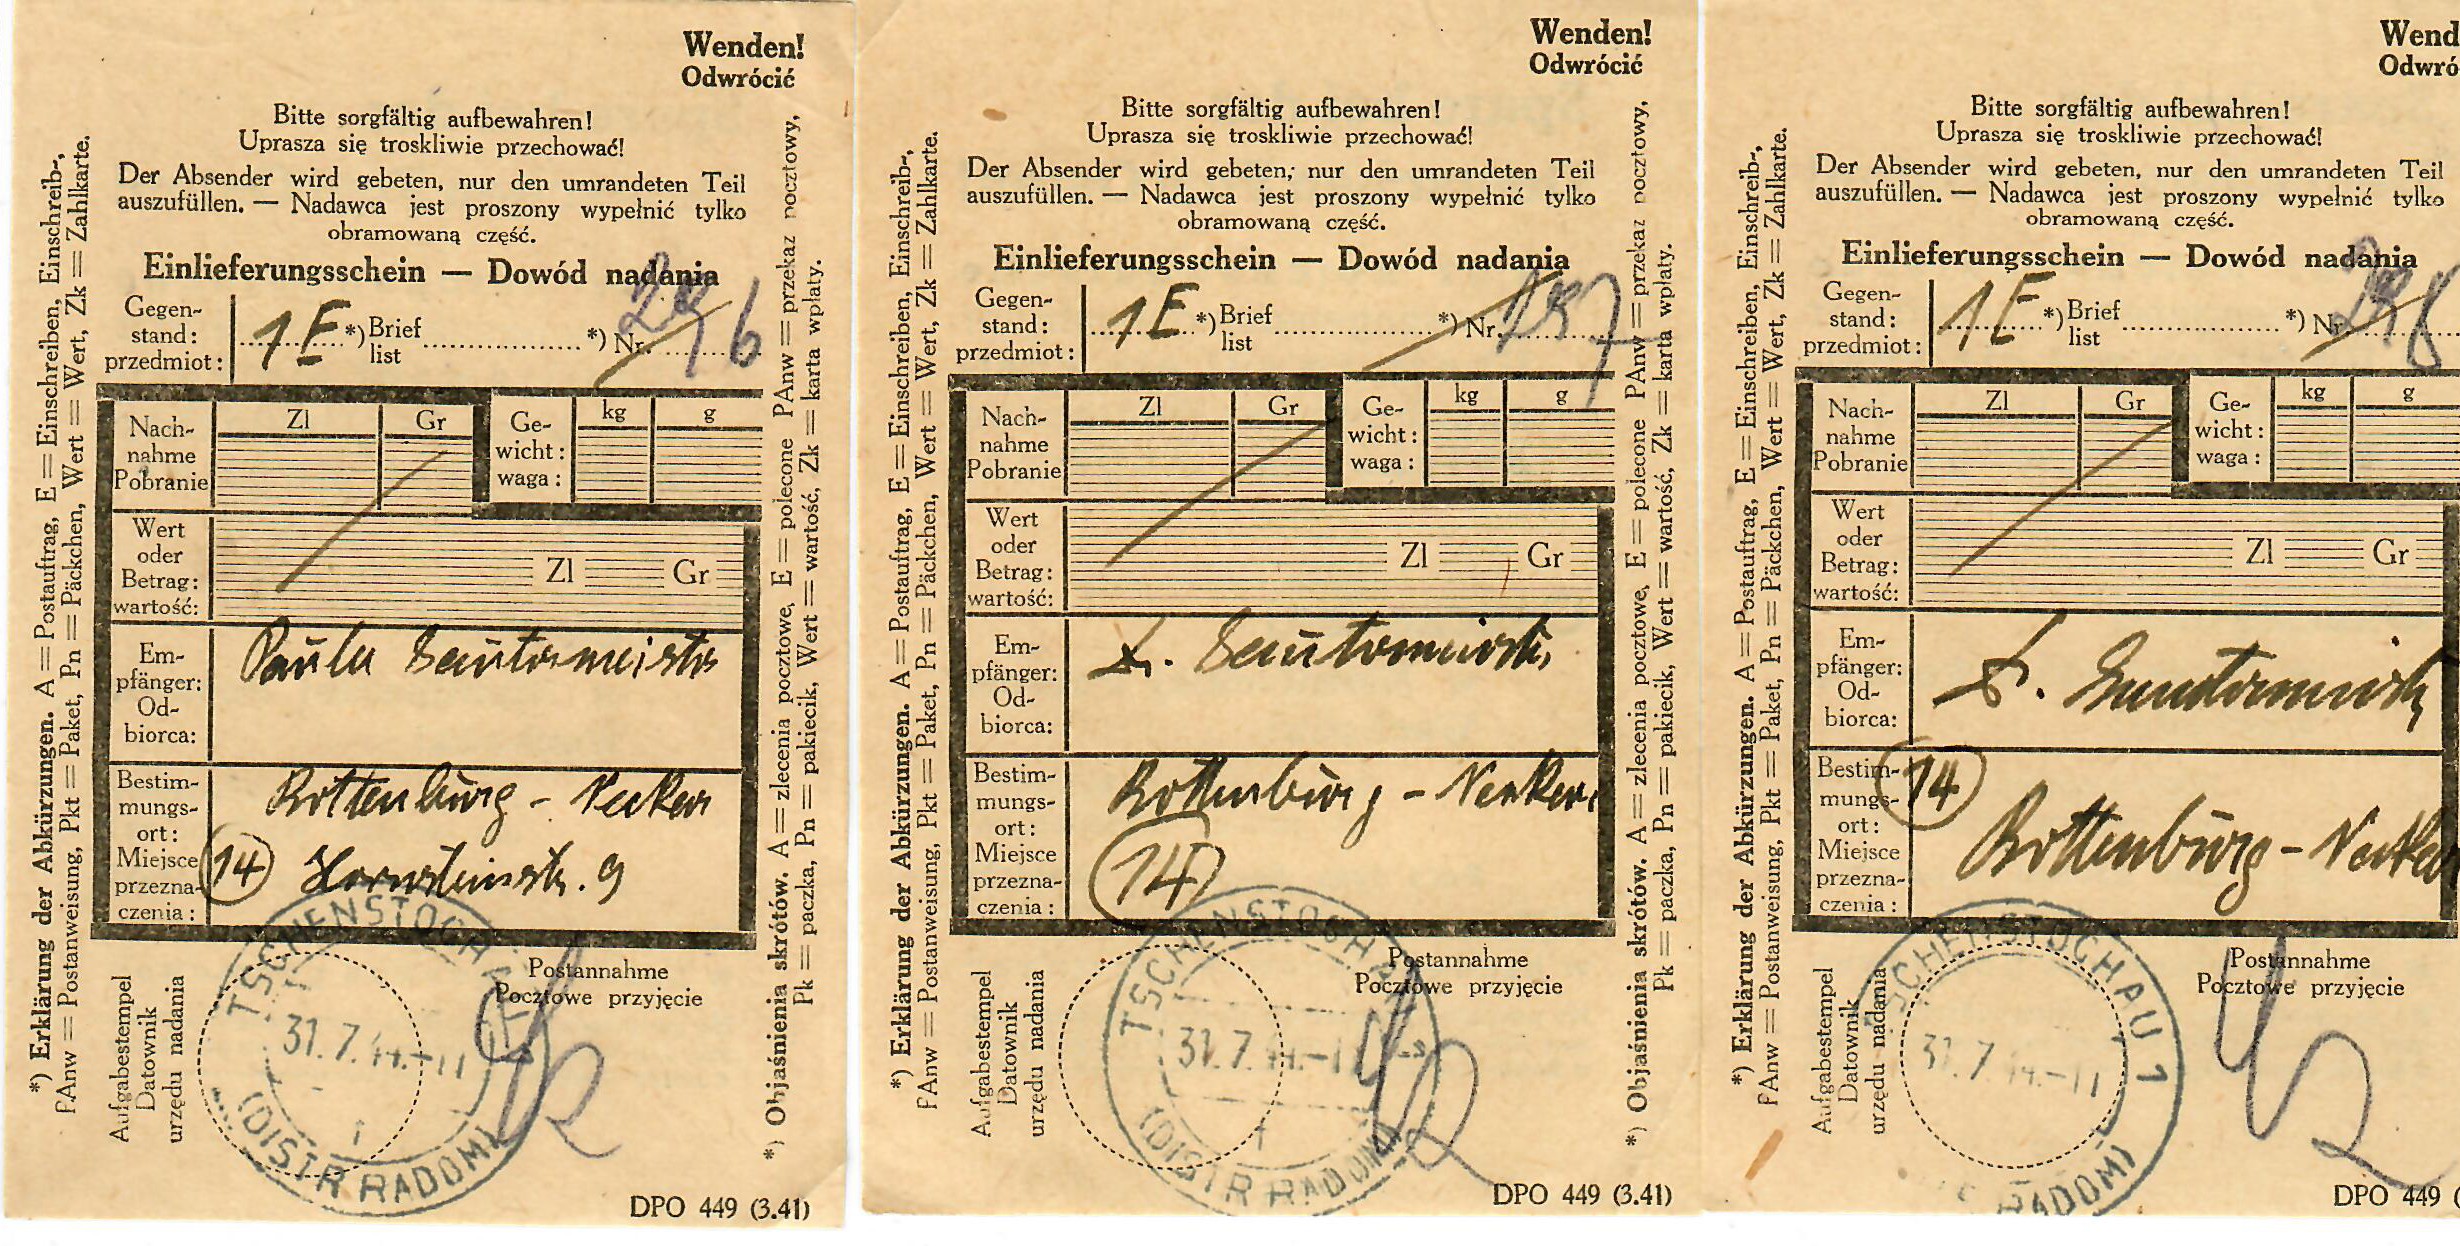 Wenden!
Odwrócić
Bitte sorgfältig aufbewahren!
Uprasza się troskliwie przechować!
Der Absender wird gebeten, nur den umrandeten Teil
auszufüllen. — Nadawca jest proszony wypełnić tylko
obramowaną część.
Einlieferungsschein — Dowód nadania
Gegen-
stand:
przedmiot:
1 E *) Brief
list
*) Nr. 296
Nach-
nahme
Pobranie
Zl Gr
Ge-
wicht:
waga:
kg g
Wert
oder
Betrag:
wartość:
Zl Gr
Em-
pfänger:
Od-
biorca:
Paula
Bestim-
mungs-
ort:
Miejsce
przezna-
czenia:
Rottenburg - Neckar
14 Hornsteinstr. 9
Aufgabestempel
Datownik
urzędu nadania
Postannahme
Pocztowe przyjęcie
TSCHENSTOCHAU
31.7.44.-11
(DISTR RADOM)
DPO 449 (3.41)
*) Erklärung der Abkürzungen. A = Postauftrag, E = Einschreiben, Einschreib-,
PAnw = Postanweisung, Pkt = Paket, Pn = Päckchen, Wert = Wert, Zk = Zahlkarte.
*) Objaśnienia skrótów. A = zlecenia pocztowe, E = polecone PAnw = przekaz pocztowy,
Pk = paczka, Pn = pakiecik, Wert = wartość, Zk = karta wpłaty.
Wenden!
Odwrócić
Bitte sorgfältig aufbewahren!
Uprasza się troskliwie przechować!
Der Absender wird gebeten, nur den umrandeten Teil
auszufüllen. — Nadawca jest proszony wypełnić tylko
obramowaną część.
Einlieferungsschein — Dowód nadania
Gegen-
stand:
przedmiot:
1 E *) Brief
list
*) Nr. 297
Nach-
nahme
Pobranie
Zl Gr
Ge-
wicht:
waga:
kg g
Wert
oder
Betrag:
wartość:
Zl Gr
Em-
pfänger:
Od-
biorca:
Bestim-
mungs-
ort:
Miejsce
przezna-
czenia:
Rottenburg - Neckar
14
Aufgabestempel
Datownik
urzędu nadania
Postannahme
Pocztowe przyjęcie
TSCHENSTOCHAU
31.7.44.-11
(DISTR RADOM)
DPO 449 (3.41)
*) Erklärung der Abkürzungen. A = Postauftrag, E = Einschreiben, Einschreib-,
PAnw = Postanweisung, Pkt = Paket, Pn = Päckchen, Wert = Wert, Zk = Zahlkarte.
*) Objaśnienia skrótów. A = zlecenia pocztowe, E = polecone PAnw = przekaz pocztowy,
Pk = paczka, Pn = pakiecik, Wert = wartość, Zk = karta wpłaty.
Wend
Odwró
Bitte sorgfältig aufbewahren!
Uprasza się troskliwie przechować!
Der Absender wird gebeten, nur den umrandeten Teil
auszufüllen. — Nadawca jest proszony wypełnić tylko
obramowaną część.
Einlieferungsschein — Dowód nadania
Gegen-
stand:
przedmiot:
1 E *) Brief
list
*) Nr 298
Nach-
nahme
Pobranie
Zl Gr
Ge-
wicht:
waga:
kg g
Wert
oder
Betrag:
wartość:
Zl Gr
Em-
pfänger:
Od-
biorca:
Bestim-
mungs-
ort:
Miejsce
przezna-
czenia:
14
Rottenburg - Neckar
Aufgabestempel
Datownik
urzędu nadania
Postannahme
Pocztowe przyjęcie
TSCHENSTOCHAU 1
31.7.44.-11
RADOM)
DPO 449 (
*) Erklärung der Abkürzungen. A = Postauftrag, E = Einschreiben, Einschreib-,
PAnw = Postanweisung, Pkt = Paket, Pn = Päckchen, Wert = Wert, Zk = Zahlkarte.